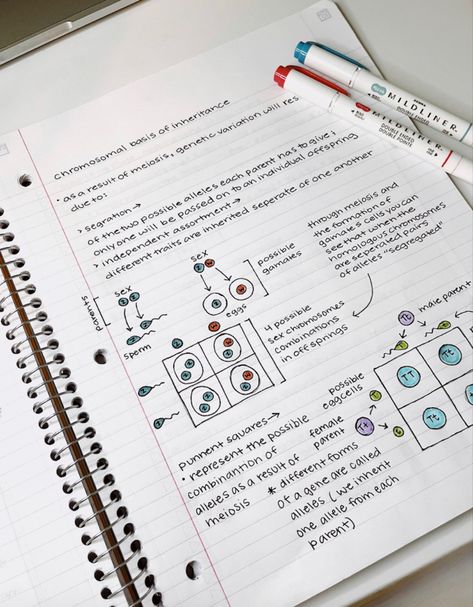 chromosomal basis of inheritance
• as a result of meiosis, genetic variation will res
due to:
> segration →
of the two possible alleles each parent has to give,
only one will be passed on to an individual offspring
> independent assortment →
different traits are inherited seperate of one another
parents
sex
sperm
sex
eggs
possible
gamates
4 possible
sex chromosomes
combinations
in offsprings
through meiosis and
the formation of
gamates cells you can
see that when the
homologous chromosomes
are seperated pairs
of alleles "segregated"
punnent squares →
• represent the possible
combinantion of
alleles as a result of
meiosis
* different forms
of a gene are called
alleles (we inherit
one allele from each
parent)
possible
egg cells
female
parent
male parent
Tt
TT
Tt
MILDLINER.
DOUBLE ENDED
MILDLINER.
DOUBLE ENDED